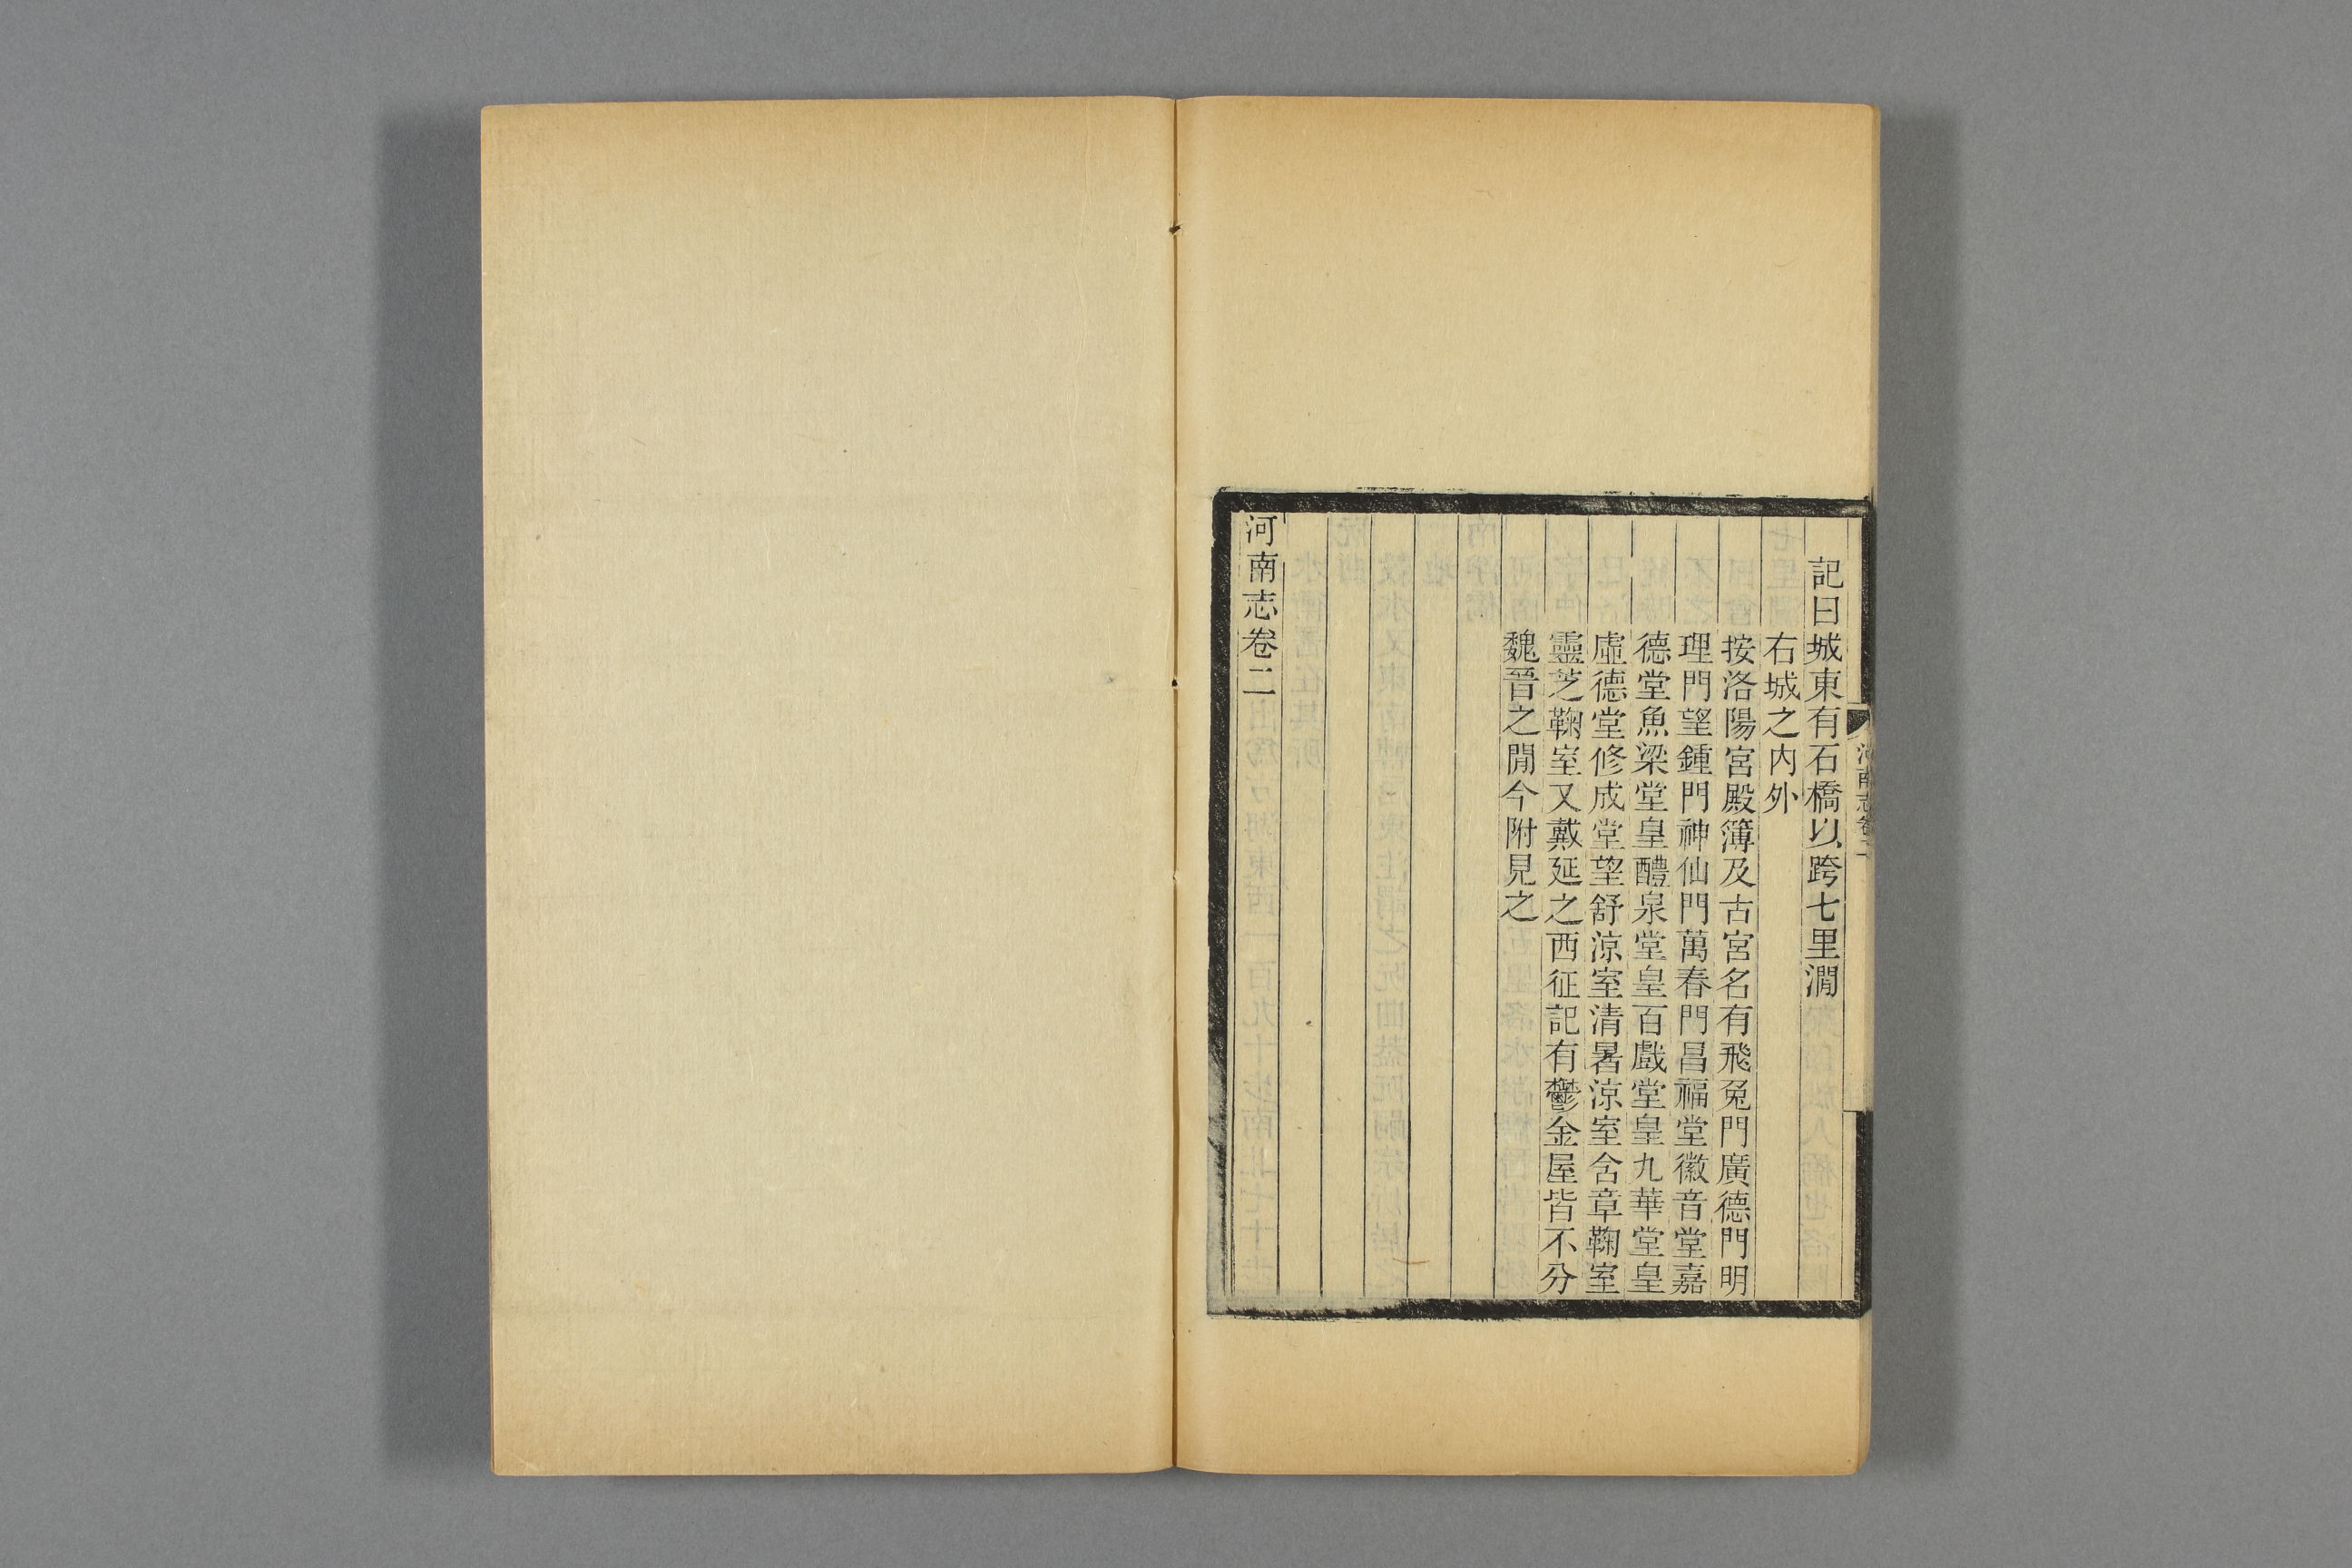 記曰城東有石橋以跨七里澗
右城之内外
按洛陽宮殿簿及古宮名有飛兔門廣德門明
理門望鍾門神仙門萬春門昌福堂徽音堂嘉
德堂魚梁堂皇醴泉堂皇百戲堂皇九華堂皇
虛德堂修成堂望舒涼室清暑涼室含章鞠室
靈芝鞠室又戴延之西征記有鬱金屋皆不分
魏晉之閒今附見之
河南志卷二